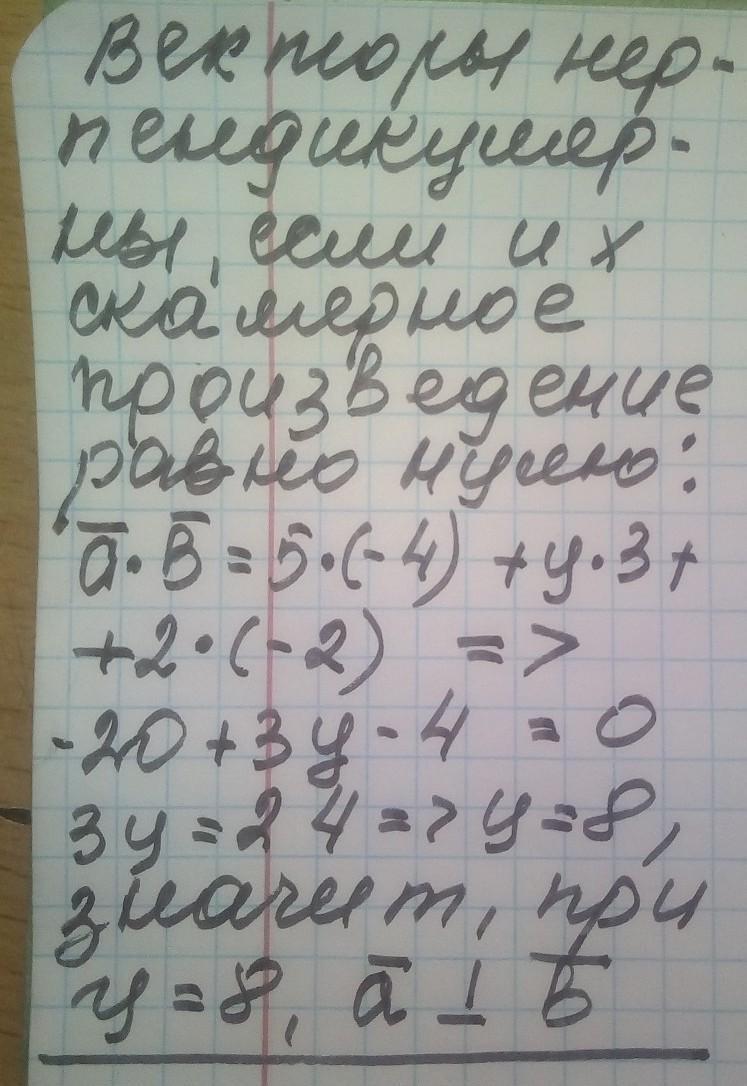 Векторы пер-
пендикуляр-
ны, если их
скалярное
произведение
равно нулю:
a̅·b̅ = 5·(-4) + y·3 +
+2·(-2) =>
-20 + 3y - 4 = 0
3y = 24 => y = 8,
значит, при
y = 8, a̅ ⊥ b̅